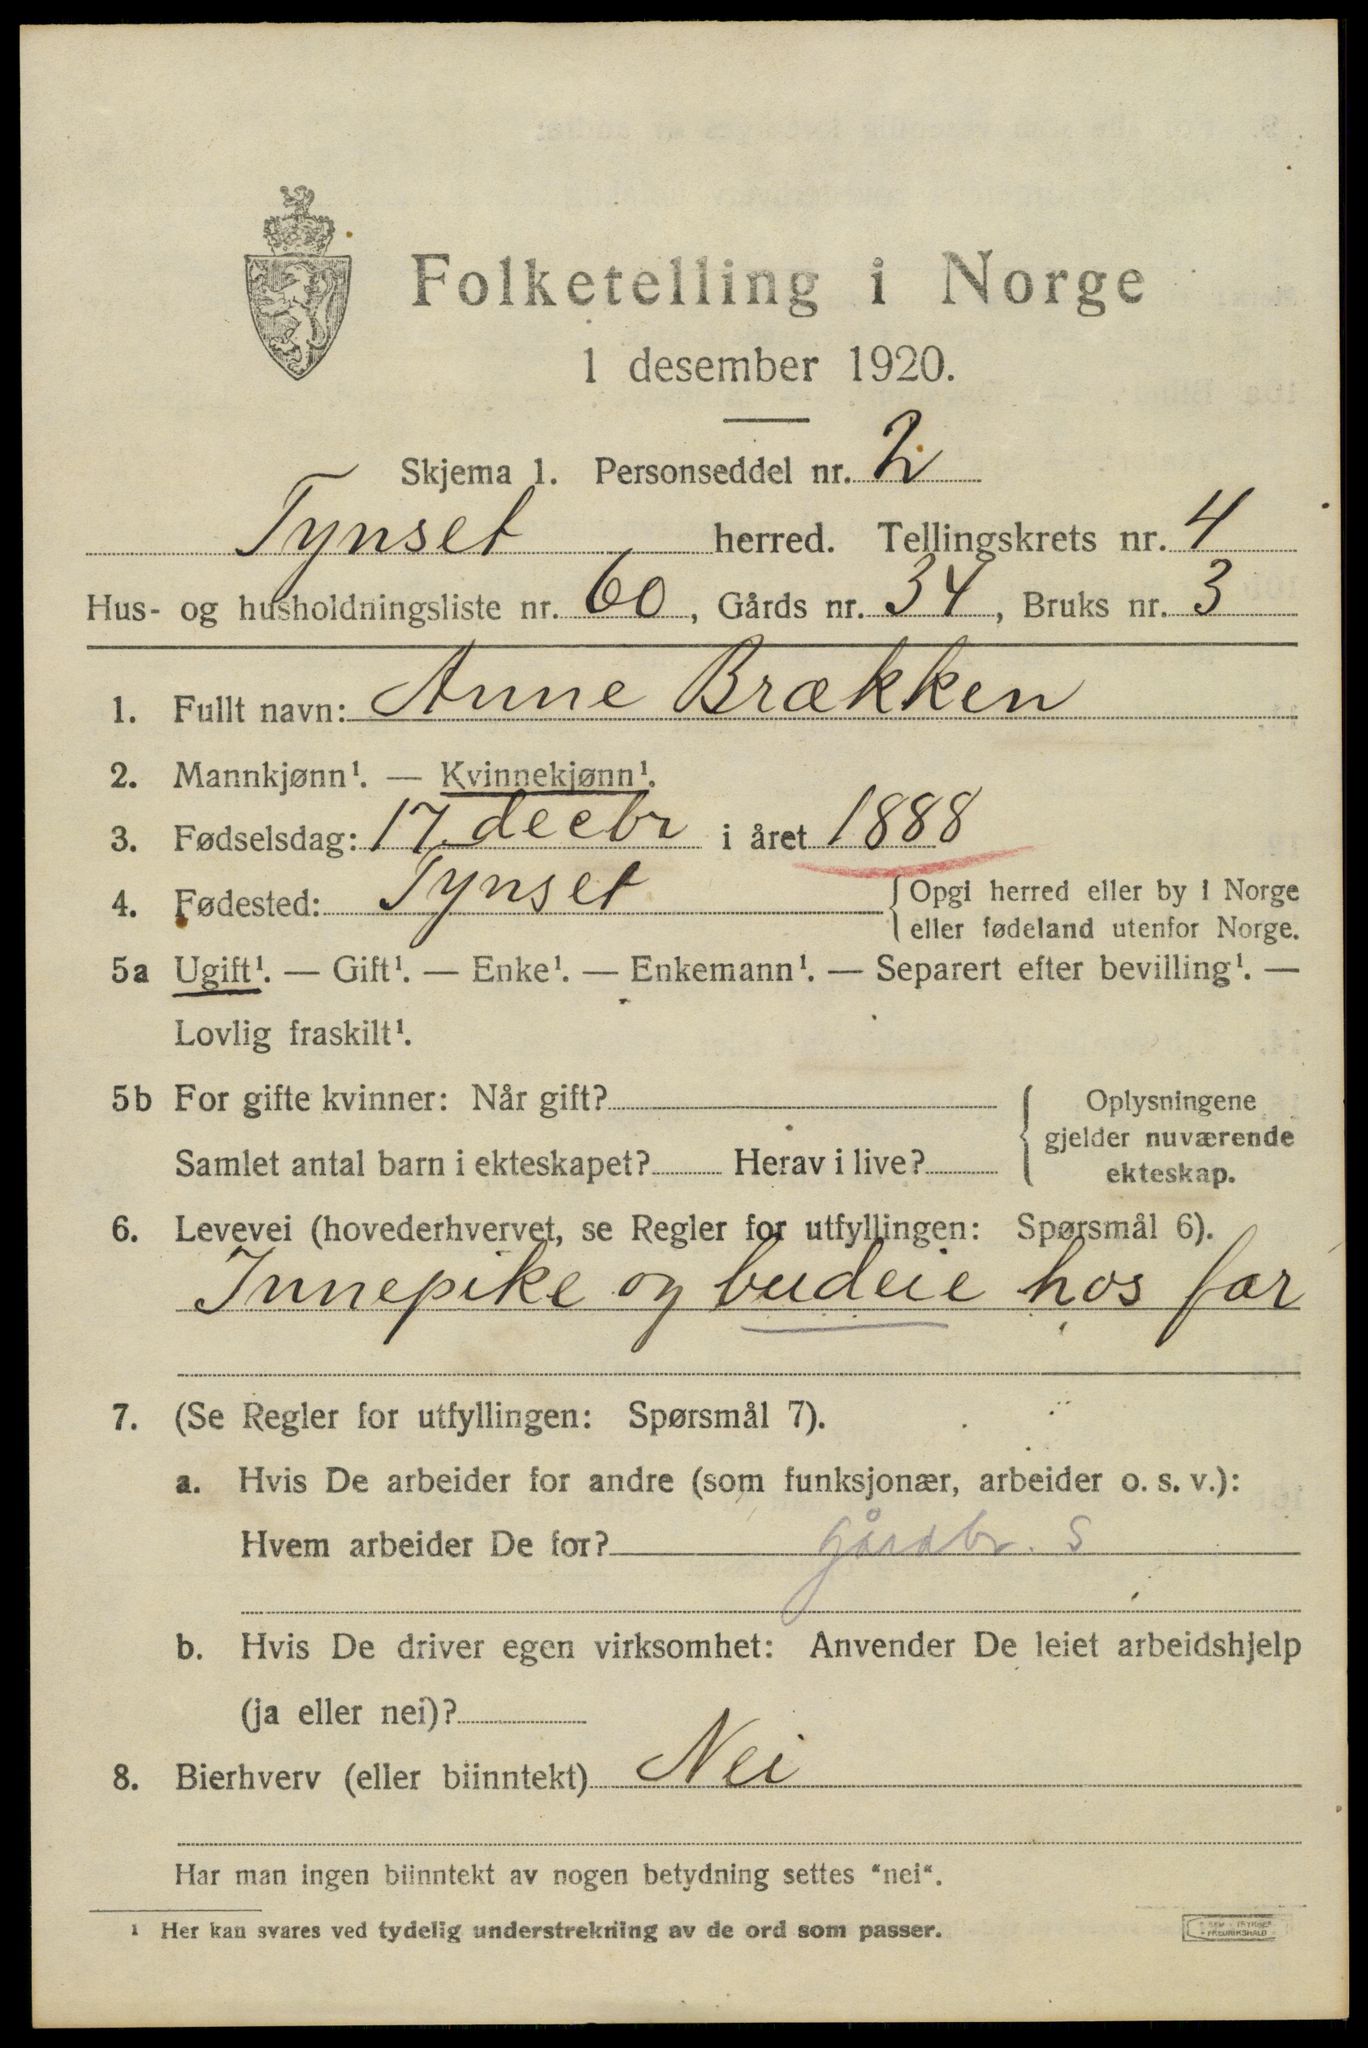 Folketelling i Norge
1 desember 1920.
Skjema 1. Personseddel nr. 2
Tynset herred. Tellingskrets nr. 4
Hus- og husholdningsliste nr. 60, Gårds nr. 34, Bruks nr. 3
1. Fullt navn: Anne Brækken
2. Mannkjønn¹. — Kvinnekjønn¹.
3. Fødselsdag: 17 decbr i året 1888
4. Fødested: Tynset {Opgi herred eller by i Norge
eller fødeland utenfor Norge.
5a Ugift¹. — Gift¹. — Enke¹. — Enkemann¹. — Separert efter bevilling¹. —
Lovlig fraskilt¹.
5b For gifte kvinner: Når gift?
Samlet antal barn i ekteskapet? Herav i live?
Oplysningene
gjelder nuværende
ekteskap.
6. Levevei (hovederhvervet, se Regler for utfyllingen: Spørsmål 6).
Innepike og budeie hos far
7. (Se Regler for utfyllingen: Spørsmål 7).
a. Hvis De arbeider for andre (som funksjonær, arbeider o. s. v.):
Hvem arbeider De for? Gårdbr. S
b. Hvis De driver egen virksomhet: Anvender De leiet arbeidshjelp
(ja eller nei)?
8. Bierhverv (eller biinntekt) Nei
Har man ingen biinntekt av nogen betydning settes "nei".
¹ Her kan svares ved tydelig understrekning av de ord som passer.
FREDRIKSHALD